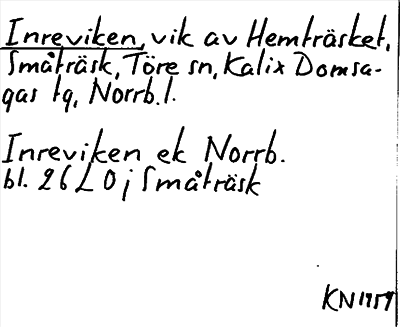 Inreviken, vik av Hemträsket,
Småträsk, Töre sn, Kalix Domsa-
gas tg, Norrb. l.
Inreviken ek Norrb.
bl. 26 L 0 j Småträsk
KN 1959